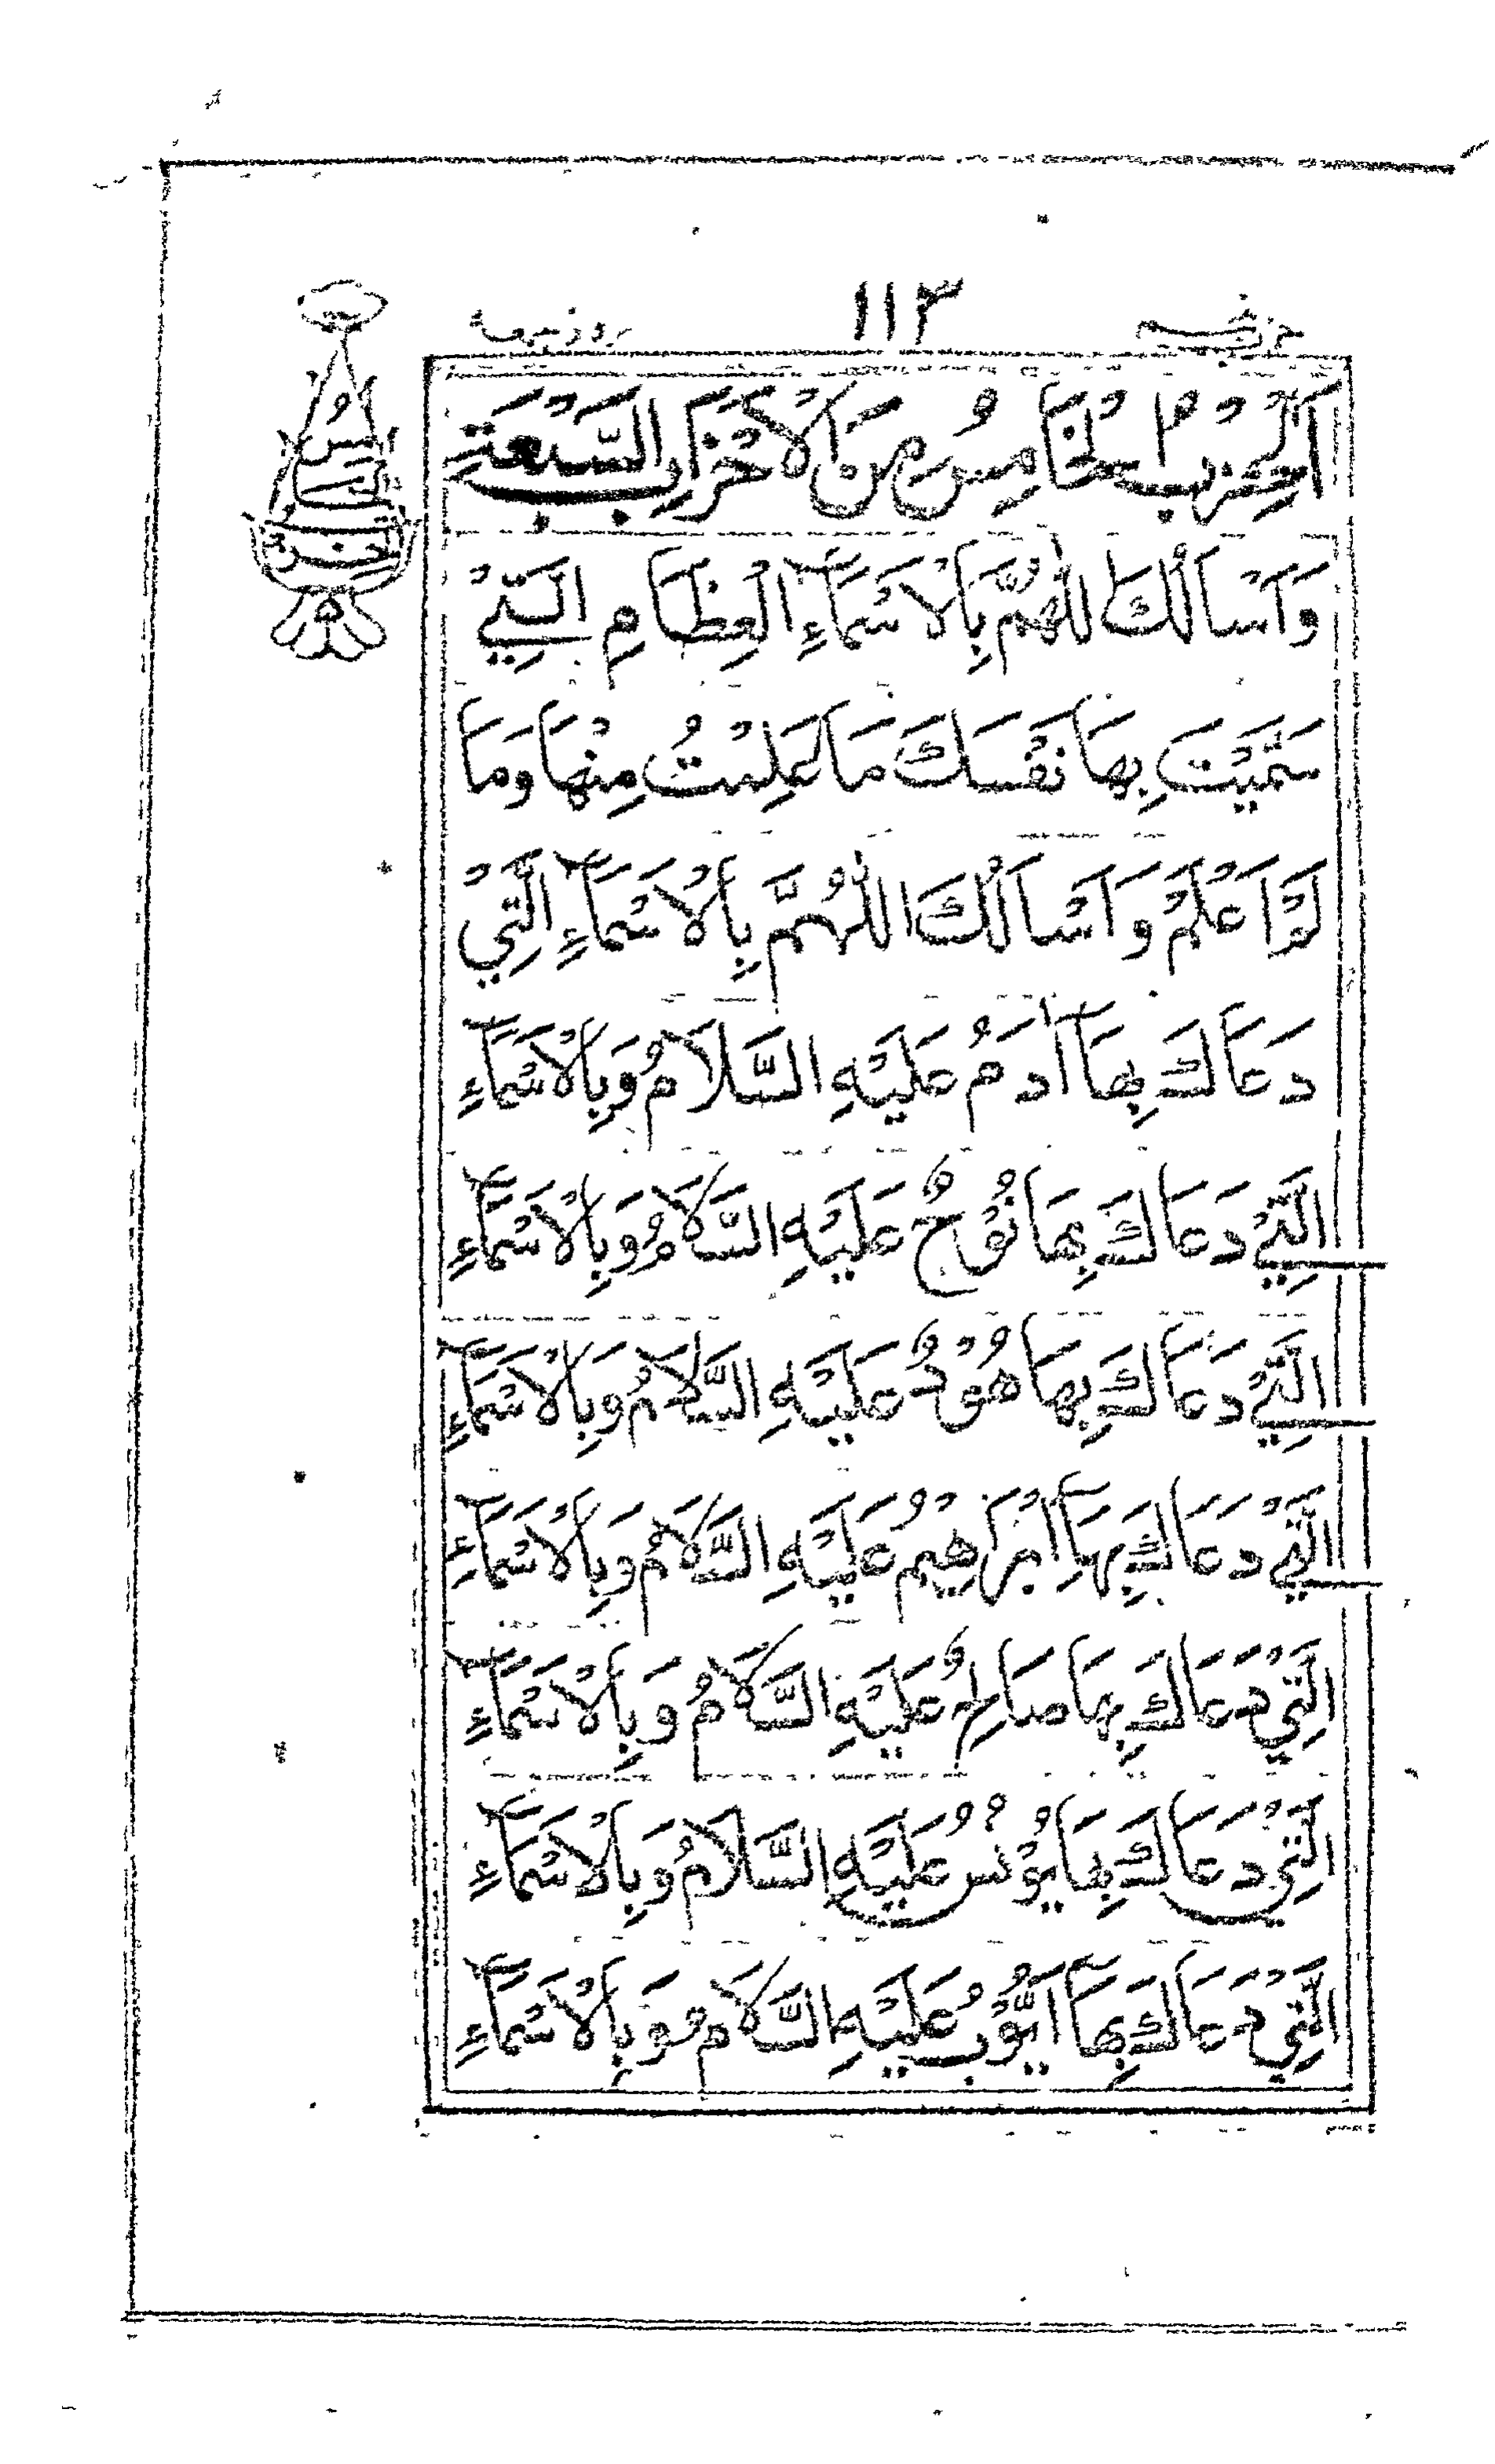 ١١٣
روز جمعه
اَلْحِزْبُ الْخَامِسُ مِنَ الْاَحْزَابِ السَّبْعَةِ
وَاَسْاَلُكَ اللّٰهُمَّ بِالْاَسْمَآءِ الْعِظَامِ الَّتِيْ
سَمَّيْتَ بِهَا نَفْسَكَ مَا عَلِمْتُ مِنْهَا وَمَا
لَمْ اَعْلَمْ وَاَسْاَلُكَ اللّٰهُمَّ بِالْاَسْمَآءِ الَّتِيْ
دَعَاكَ بِهَآ اٰدَمُ عَلَيْهِ السَّلَامُ وَبِالْاَسْمَآءِ
الَّتِيْ دَعَاكَ بِهَا نُوْحٌ عَلَيْهِ السَّلَامُ وَبِالْاَسْمَآءِ
الَّتِيْ دَعَاكَ بِهَا هُوْدٌ عَلَيْهِ السَّلَامُ وَبِالْاَسْمَآءِ
الَّتِيْ دَعَاكَ بِهَآ اِبْرَاهِيْمُ عَلَيْهِ السَّلَامُ وَبِالْاَسْمَآءِ
الَّتِيْ دَعَاكَ بِهَا صَالِحٌ عَلَيْهِ السَّلَامُ وَبِالْاَسْمَآءِ
الَّتِيْ دَعَاكَ بِهَا يُوْنُسُ عَلَيْهِ السَّلَامُ وَبِالْاَسْمَآءِ
الَّتِيْ دَعَاكَ بِهَآ اَيُّوْبُ عَلَيْهِ السَّلَامُ وَبِالْاَسْمَآءِ